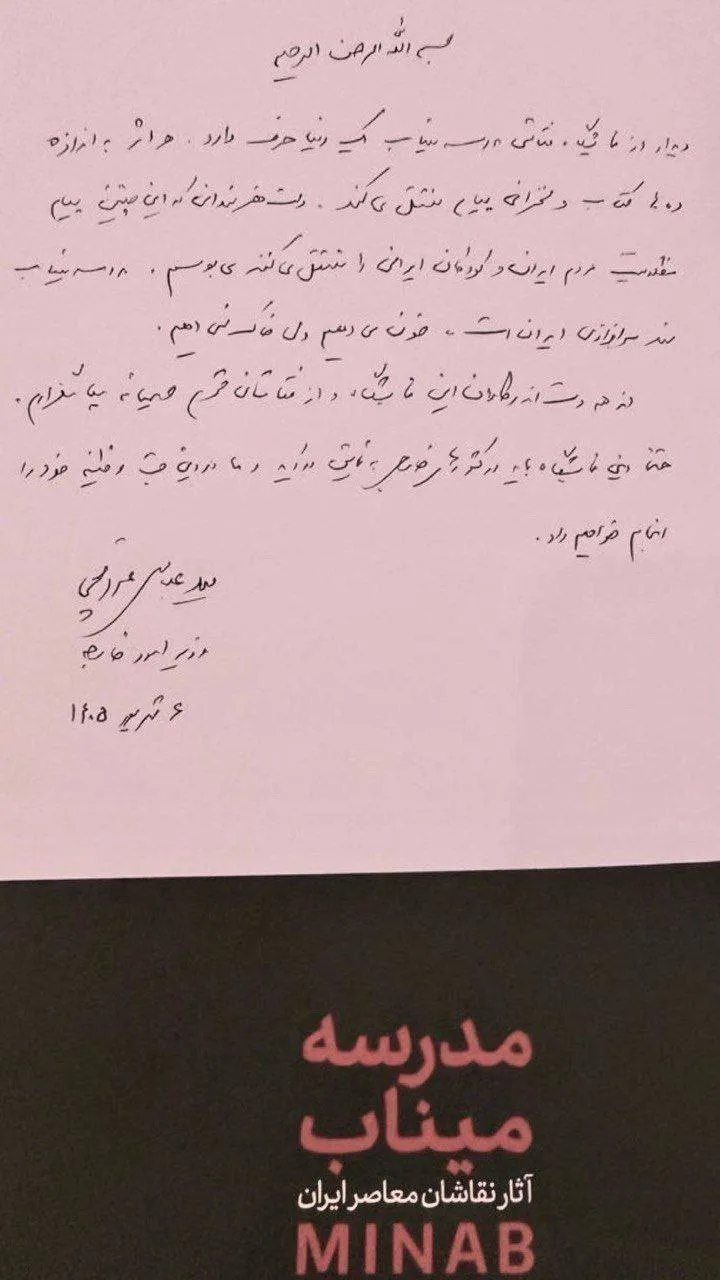 بسم الله الرحمن الرحیم
دیدار از نمایشگاه نقاشی مدرسه میناب یک دنیا حرف دارد. هر اثر به اندازه
ده‌ها کتاب و سخنرانی پیام منتقل می‌کند. دست هنرمندانی که این چنین پیام
مظلومیت مردم ایران و کودکان ایرانی را منتقل می‌کنند می‌بوسم. مدرسه میناب
سند سرافرازی ایران است، خون می‌دهیم ولی خاک نمی‌دهیم.
از همه دست اندرکاران این نمایشگاه و از نقاشان محترم صمیمانه سپاسگزارم.
حتما این نمایشگاه باید در کشورهای خارجی به نمایش درآید و ما در این جهت وظیفه خود را
انجام خواهیم داد.
سید عباس عراقچی
وزیر امور خارجه
۶ شهریور ۱۴۰۵
مدرسه
میناب
آثار نقاشان معاصر ایران
MINAB